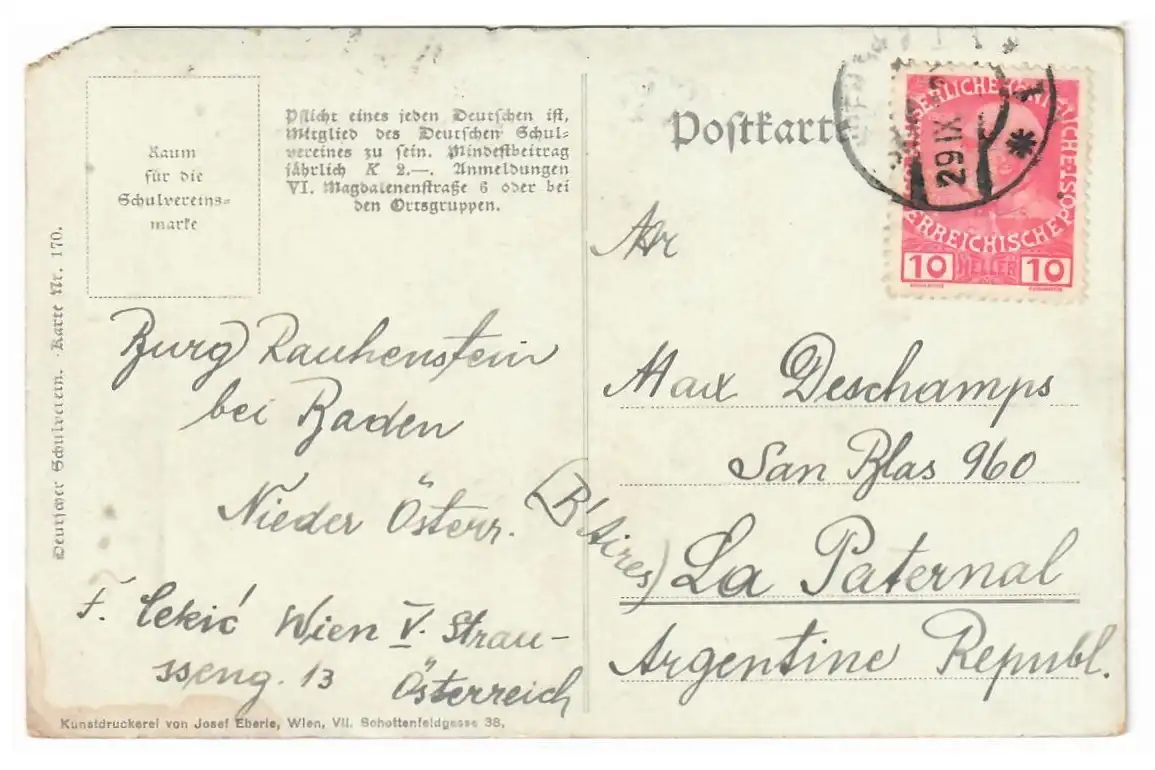 Raum
für die
Schulvereins-
marke
Pflicht eines jeden Deutschen ist,
Mitglied des Deutschen Schul-
vereines zu sein. Mindestbeitrag
jährlich K 2.—. Anmeldungen
VI. Magdalenenstraße 6 oder bei
den Ortsgruppen.
Postkarte
29 IX
1
ÖSTERREICHISCHE POST
10 HELLER 10
Deutscher Schulverein. Karte Nr. 170.
Burg Rauhenstein
bei Baden
Nieder Österr.
F. Cekić Wien V. Strau-
sseng. 13 Österreich
Max Deschamps
San Blas 960
(B'Aires) La Paternal
Argentine Republ.
Kunstdruckerei von Josef Eberle, Wien, VII. Schottenfeldgasse 38.